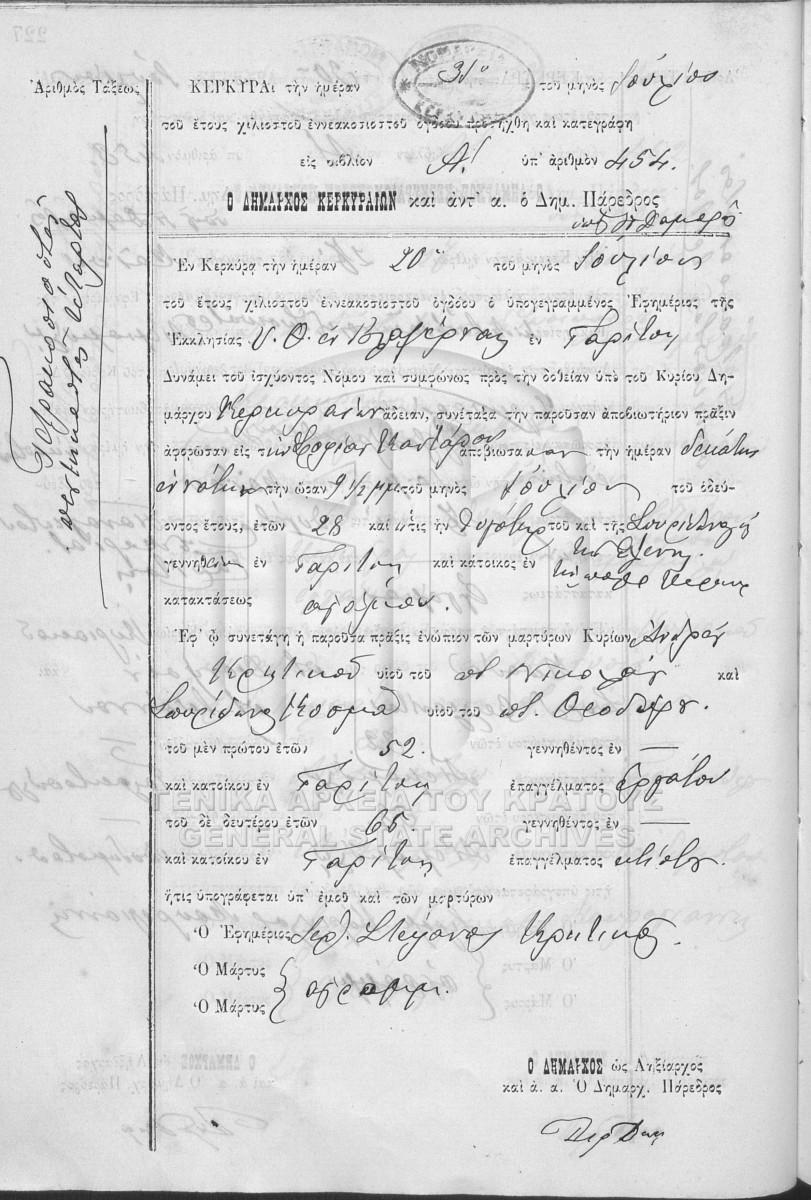 Ἀριθμὸς Τάξεως
Τετρακοσιοστὸς
πεντηκοστὸς τέταρτος
ΝΟΜΑΡΧΙΑ
ΚΕΡΚΥΡΑι τὴν ἡμέραν 31η τοῦ μηνὸς Ἰουλίου
τοῦ ἔτους χιλιοστοῦ ἐννεακοσιοστοῦ ὀγδόου προσήχθη καὶ κατεγράφη
εἰς βιβλίον Α! ὑπ' ἀριθμὸν 454.
Ο ΔΗΜΑΡΧΟΣ ΚΕΡΚΥΡΑΙΩΝ καὶ ἀντ' α. ὁ Δημ. Πάρεδρος
Ἐν Κερκύρᾳ τὴν ἡμέραν 20η τοῦ μηνὸς Ἰουλίου
τοῦ ἔτους χιλιοστοῦ ἐννεακοσιοστοῦ ὀγδόου ὁ ὑπογεγραμμένος Ἐφημέριος τῆς
Ἐκκλησίας Υ. Θ. ἐν Βλαχέρναις ἐν Γαρίτσῃ
Δυνάμει τοῦ ἰσχύοντος Νόμου καὶ συμφώνως πρὸς τὴν δοθεῖσαν ὑπὸ τοῦ Κυρίου Δη-
μάρχου Κερκυραίων ἄδειαν, συνέταξα τὴν παροῦσαν ἀποβιωτήριον πρᾶξιν
ἀφορῶσαν εἰς τὴν Σοφίαν ἀποβιώσασαν τὴν ἡμέραν δεκάτην
ἐννάτην τὴν ὥραν 9 1/2 μμ τοῦ μηνὸς Ἰουλίου τοῦ ὁδεύ-
οντος ἔτους, ἐτῶν 28 καὶ ἥτις ἦν θυγάτηρ τοῦ καὶ τῆς Σπυρίδωνος
καὶ Ἑλένης
γεννηθεῖσα ἐν Γαρίτσῃ καὶ κάτοικος ἐν
κατακτάσεως
Ἐφ' ᾧ συνετάγη ἡ παροῦσα πρᾶξις ἐνώπιον τῶν μαρτύρων Κυρίων Ἀνδρέου
Κρητικοῦ υἱοῦ τοῦ ποτ. Νικολάου καὶ
Σπυρίδωνος Κοσμᾶ υἱοῦ τοῦ ποτ. Θεοδώρου.
τοῦ μὲν πρώτου ἐτῶν 52. γεννηθέντος ἐν —
καὶ κατοίκου ἐν Γαρίτσῃ ἐπαγγέλματος ἐργάτου
ΓΕΝΙΚΑ ΑΡΧΕΙΑ ΤΟΥ ΚΡΑΤΟΥΣ
τοῦ δὲ δευτέρου ἐτῶν 65. γεννηθέντος ἐν —
GENERAL STATE ARCHIVES
καὶ κατοίκου ἐν Γαρίτσῃ ἐπαγγέλματος κτίστου.
ἥτις ὑπογράφεται ὑπ' ἐμοῦ καὶ τῶν μαρτύρων
Ὁ Ἐφημέριος Ἱερ. Στέφανος Κρητικός.
Ὁ Μάρτυς
ἀγράμματοι.
Ὁ Μάρτυς
Ο ΔΗΜΑΡΧΟΣ ὡς Ληξίαρχος
καὶ ἀ. α. Ὁ Δημαρχ. Πάρεδρος